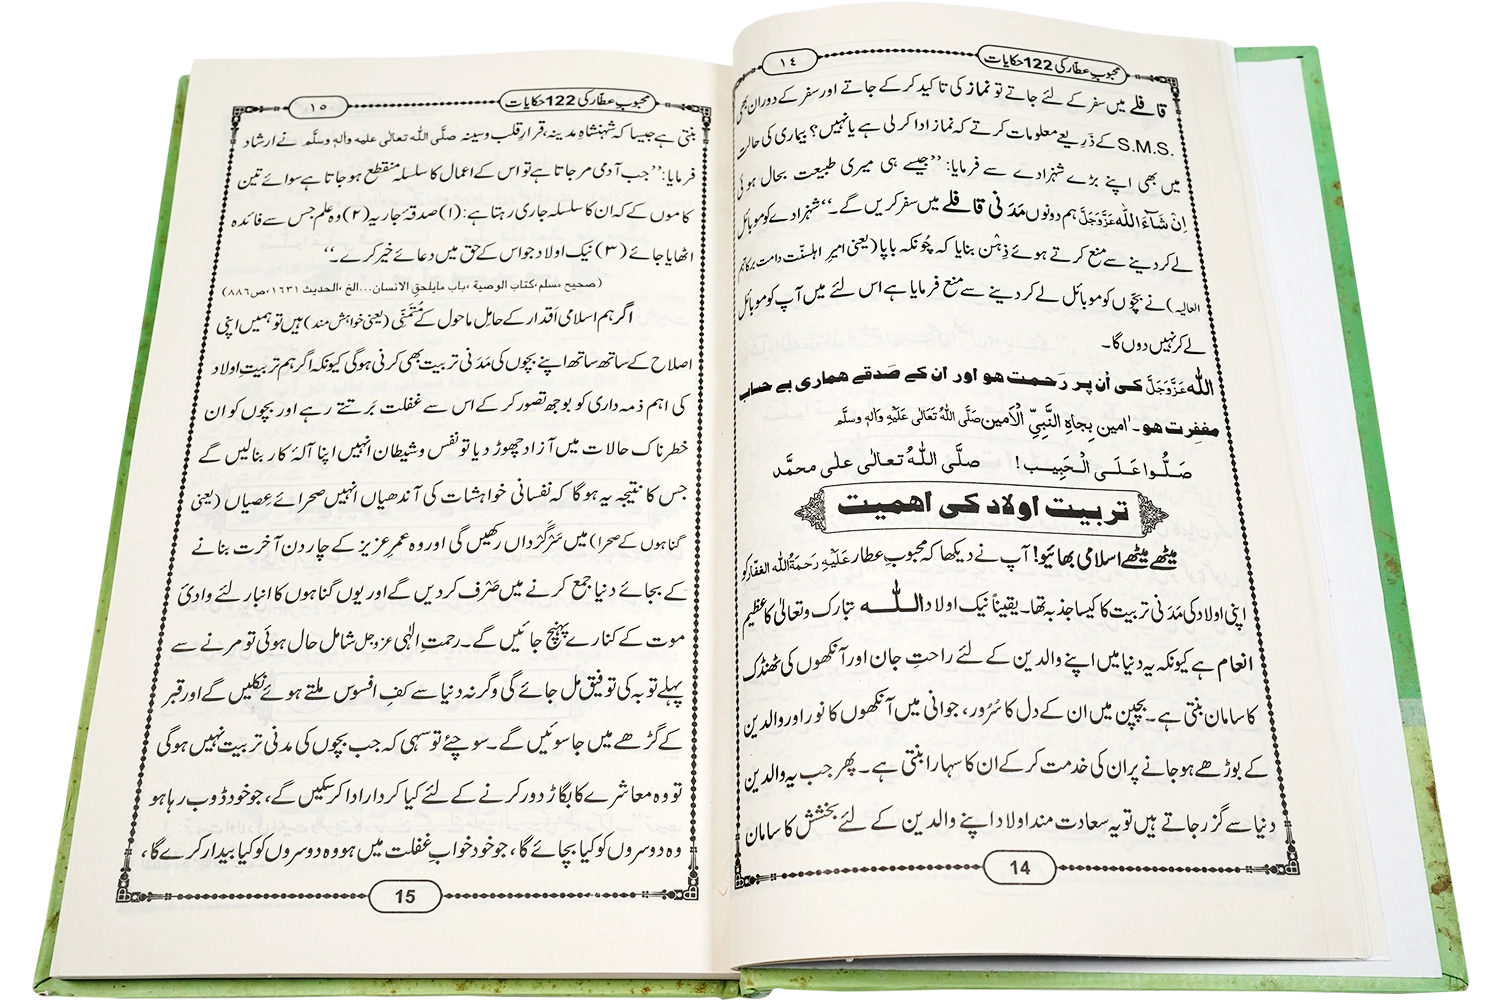 محبوبِ عطّار کی 122 حکایات
١٤
قافلے میں سفر کے لئے جاتے تو نماز کی تاکید کر کے جاتے اور سفر کے دوران بھی
S.M.S. کے ذَرِیعے معلومات کرتے کہ نماز ادا کر لی ہے یا نہیں؟ بیماری کی حالت
میں بھی اپنے بڑے شہزادے سے فرمایا: ’’جیسے ہی میری طبیعت بحال ہوئی
اِنْ شَآءَ اللّٰہ عَزَّوَجَلَّ ہم دونوں مَدَنی قافلے میں سفر کریں گے۔‘‘ شہزادے کو موبائل
لے کر دینے سے منع کرتے ہوئے ذِہْن بنایا کہ چُونکہ باپا (یعنی امیرِ اہلسنّت دامت برکاتہم
العالیہ) نے بچّوں کو موبائل لے کر دینے سے منع فرمایا ہے اس لئے میں آپ کو موبائل
لے کر نہیں دوں گا۔
اللّٰہ عَزَّوَجَلَّ کی اُن پر رَحمت ہو اور ان کے صَدقے ہماری بے حساب
مغفِرت ہو۔ اٰمین بِجاہِ النَّبِیِّ الْاَمین صَلَّی اللّٰہُ تَعَالٰی عَلَیْہِ وَاٰلہٖ وسلَّم
صَلُّوا عَلَی الْحَبِیب! صلَّی اللّٰہُ تعالٰی علٰی محمَّد
تربیت اولاد کی اہمیت
میٹھے میٹھے اسلامی بھائیو! آپ نے دیکھا کہ محبوبِ عطار عَلَیْہِ رَحمَۃُ اللّٰہِ الغفَّار کو
اپنی اولاد کی مَدَنی تربیت کا کیسا جذبہ تھا۔ یقیناً نیک اولاد اللّٰہ تبارک وتعالٰی کا عظیم
انعام ہے کیونکہ یہ دنیا میں اپنے والدین کے لئے راحتِ جان اور آنکھوں کی ٹھنڈک
کا سامان بنتی ہے۔ بچپن میں ان کے دل کا سُرُور، جوانی میں آنکھوں کا نور اور والدین
کے بوڑھے ہو جانے پر ان کی خدمت کر کے ان کا سہارا بنتی ہے۔ پھر جب یہ والدین
دنیا سے گزر جاتے ہیں تو یہ سعادت مند اولاد اپنے والدین کے لئے بخشش کا سامان
14
محبوبِ عطّار کی 122 حکایات
١٥
بنتی ہے جیسا کہ شہنشاہِ مدینہ، قرارِ قلب و سینہ صلَّی اللّٰہ تعالٰی علیہ واٰلہٖ وسلَّم نے ارشاد
فرمایا: ’’جب آدمی مر جاتا ہے تو اس کے اعمال کا سلسلہ منقطع ہو جاتا ہے سوائے تین
کاموں کے کہ ان کا سلسلہ جاری رہتا ہے: (۱) صدقۂ جاریہ (۲) وہ علم جس سے فائدہ
اٹھایا جائے (۳) نیک اولاد جو اس کے حق میں دعائے خیر کرے۔‘‘
(صحیح مسلم، کتاب الوصیۃ، باب مایلحق الانسان...الخ، الحدیث ١٦٣١، ص٨٨٦)
اگر ہم اسلامی اَقدار کے حامِل ماحول کے مُتَمَنِّی (یعنی خواہش مند) ہیں تو ہمیں اپنی
اصلاح کے ساتھ ساتھ اپنے بچوں کی مَدَنی تربیت بھی کرنی ہوگی کیونکہ اگر ہم تربیتِ اولاد
کی اہم ذمہ داری کو بوجھ تصور کر کے اس سے غفلت بَرتتے رہے اور بچوں کو ان
خطرناک حالات میں آزاد چھوڑ دیا تو نفس و شیطان انہیں اپنا آلۂ کار بنالیں گے
جس کا نتیجہ یہ ہوگا کہ نفسانی خواہشات کی آندھیاں انہیں صحرائے عِصیاں (یعنی
گناہوں کے صحرا) میں سَرگَرداں رکھیں گی اور وہ عمرِ عزیز کے چار دن آخرت بنانے
کے بجائے دنیا جمع کرنے میں صَرْف کر دیں گے اور یوں گناہوں کا انبار لئے وادیٔ
موت کے کنارے پہنچ جائیں گے۔ رحمتِ الٰہی عزوجل شامل حال ہوئی تو مرنے سے
پہلے توبہ کی توفیق مل جائے گی وگرنہ دنیا سے کفِ افسوس ملتے ہوئے نکلیں گے اور قبر
کے گڑھے میں جا سوئیں گے۔ سوچئے تو سہی کہ جب بچوں کی مدنی تربیت نہیں ہوگی
تو وہ معاشرے کا بگاڑ دور کرنے کے لئے کیا کردار ادا کر سکیں گے، جو خود ڈوب رہا ہو
وہ دوسروں کو کیا بچائے گا، جو خود خوابِ غفلت میں ہو وہ دوسروں کو کیا بیدار کرے گا،
15